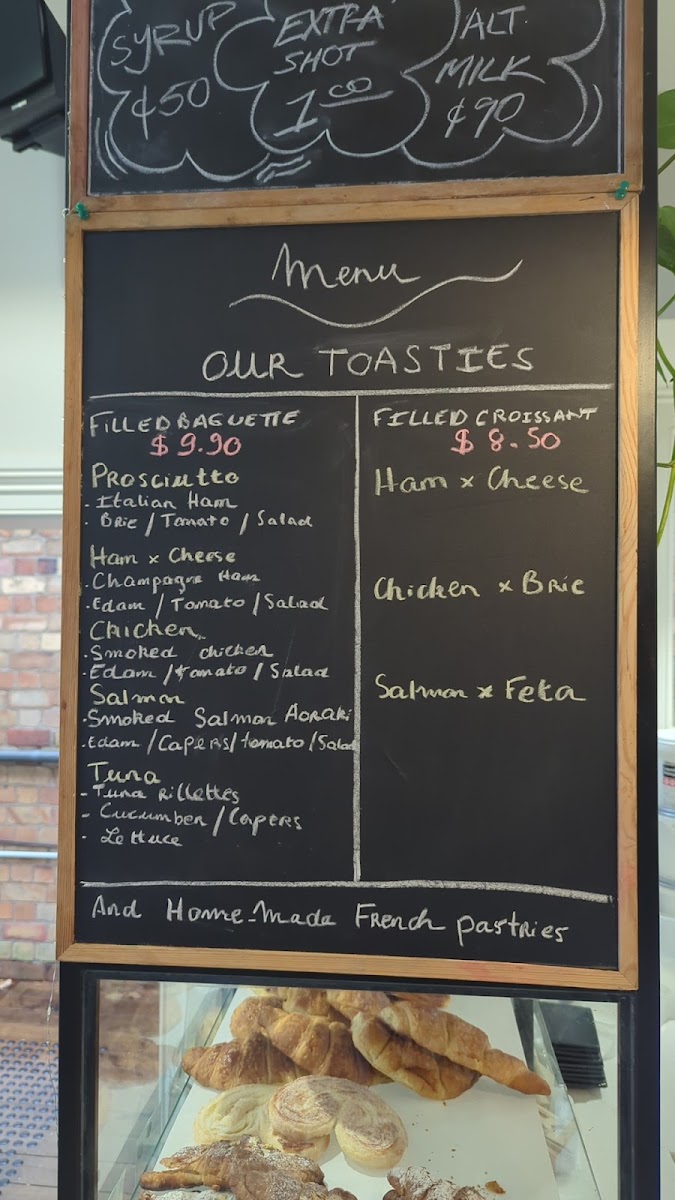 SYRUP
¢50
EXTRA
SHOT
1.00
ALT.
MILK
¢90
Menu
OUR TOASTIES
FILLED BAGUETTE
$9.90
Prosciutto
- Italian Ham
- Brie / Tomato / Salad
Ham x Cheese
- Champagne Ham
- Edam / Tomato / Salad
Chicken
- Smoked chicken
- Edam / tomato / Salad
Salmon
- Smoked Salmon Aoraki
- Edam / Capers / tomato / Salad
Tuna
- Tuna Rillettes
- Cucumber / Capers
- Lettuce
FILLED CROISSANT
$8.50
Ham x Cheese
Chicken x Brie
Salmon x Feta
And Home-Made French pastries